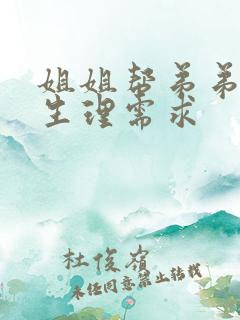 姐姐帮弟弟
生理需求
杜俊嶺
未经同意禁止转载